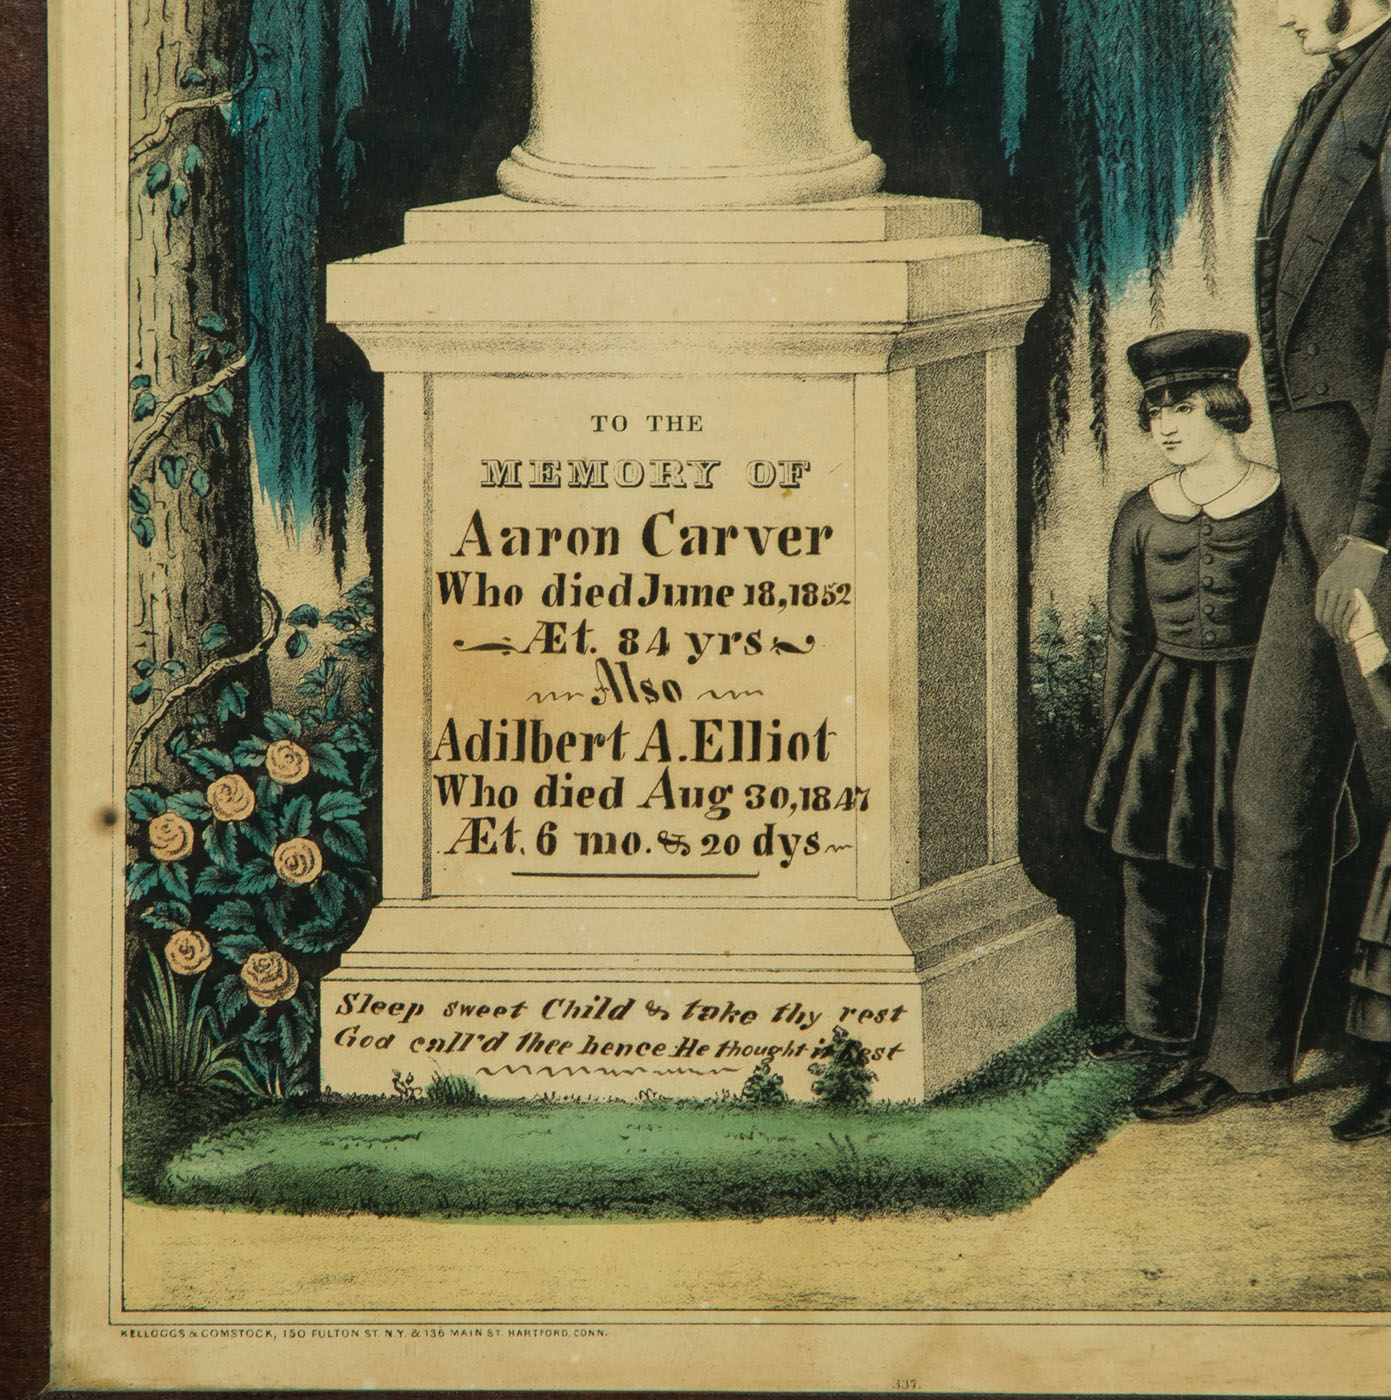 TO THE
MEMORY OF
Aaron Carver
Who died June 18, 1852
Æt. 84 yrs
Also
Adilbert A. Elliot
Who died Aug 30, 1847
Æt. 6 mo. & 20 dys
Sleep sweet Child & take thy rest
God call'd thee hence He thought it best
KELLOGGS & COMSTOCK, 150 FULTON ST. N.Y. & 136 MAIN ST. HARTFORD, CONN.
337.